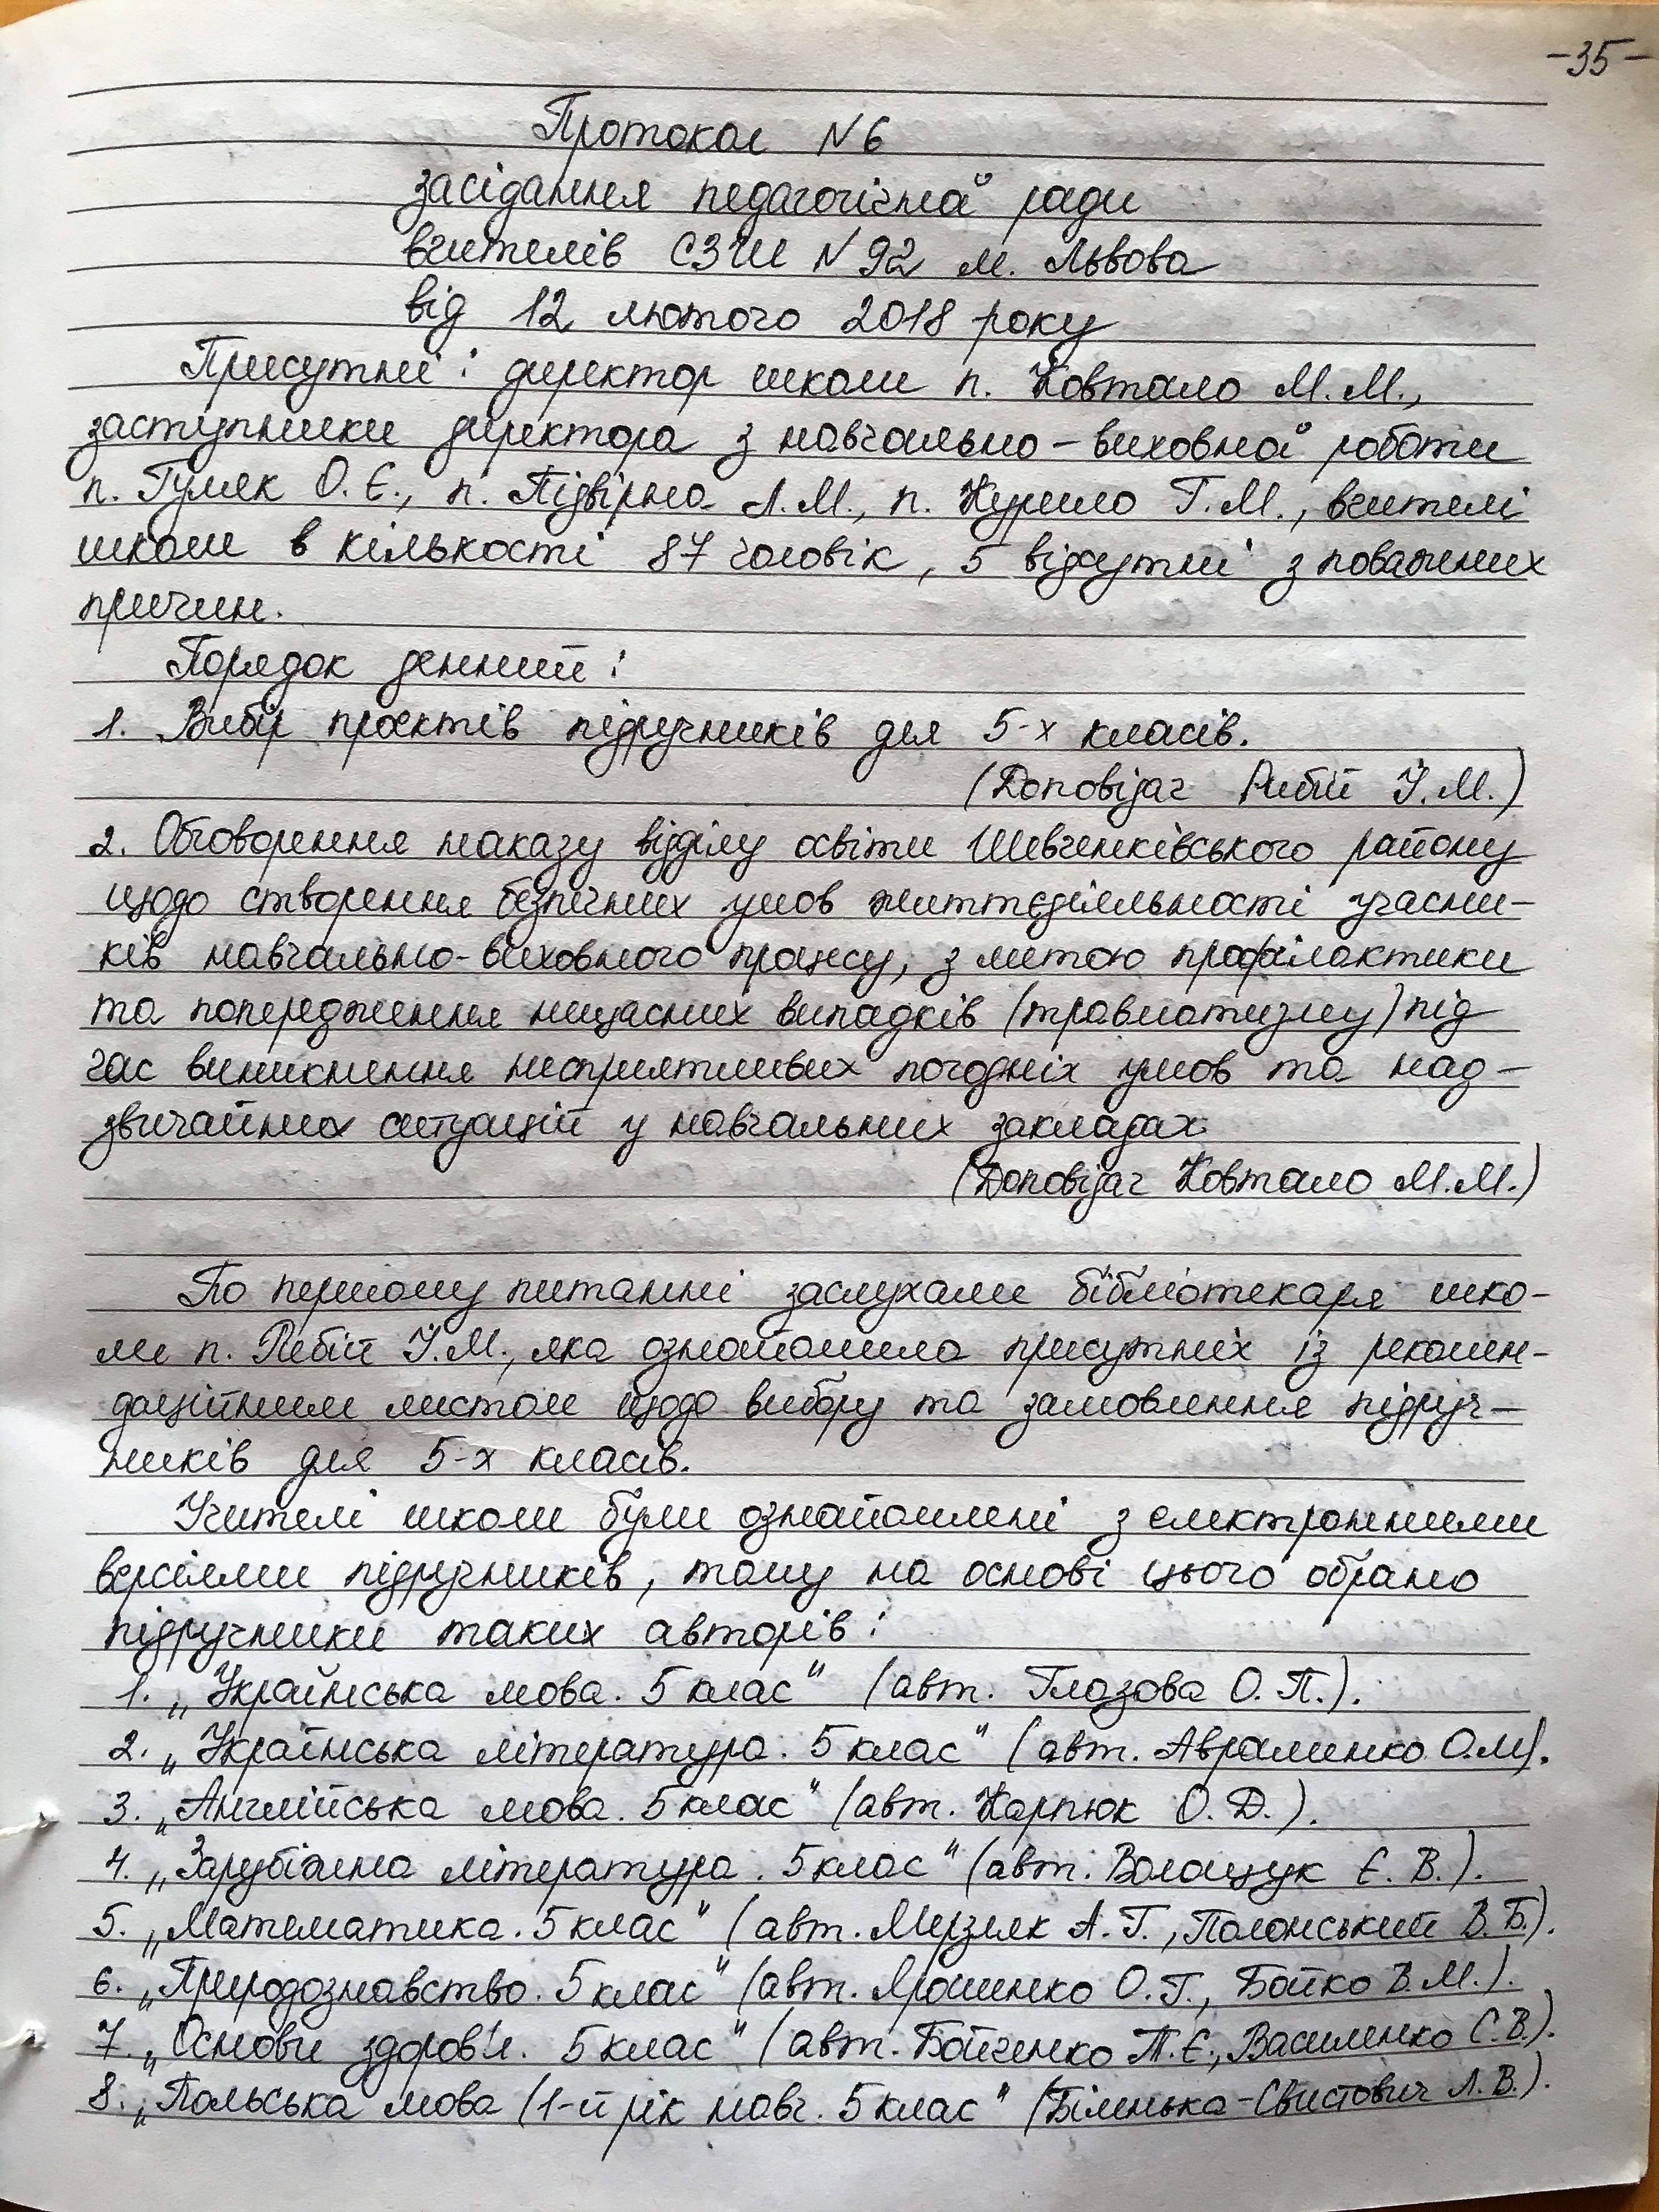 -35-
Протокол №6
засідання педагогічної ради
вчителів СЗШ №92 м. Львова
від 12 лютого 2018 року
Присутні: директор школи п. Ковтало М.М.,
заступники директора з навчально-виховної роботи
п. Гуляк О.Є., п. Підвірна Л.М., п. Курило Г.М., вчителі
школи в кількості 87 чоловік, 5 відсутні з поважних
причин.
Порядок денний:
1. Вибір проєктів підручників для 5-х класів.
(Доповідач Рибій І.М.)
2. Обговорення наказу відділу освіти Шевченківського району
щодо створення безпечних умов життєдіяльності учасни-
ків навчально-виховного процесу, з метою профілактики
та попередження нещасних випадків (травматизму) під
час виникнення несприятливих погодніх умов та над-
звичайних ситуацій у навчальних закладах.
(Доповідач Ковтало М.М.)
По першому питанні заслухали бібліотекаря шко-
ли п. Рибій І.М., яка ознайомила присутніх із рекомен-
даційним листом щодо вибору та замовлення підруч-
ників для 5-х класів.
Учителі школи були ознайомлені з електронними
версіями підручників, тому на основі цього обрано
підручники таких авторів:
1. „Українська мова. 5 клас" (авт. Глазова О.П.).
2. „Українська література. 5 клас" (авт. Авраменко О.М).
3. „Англійська мова. 5 клас" (авт. Карпюк О.Д.).
4. „Зарубіжна література. 5 клас" (авт. Волощук Є.В.).
5. „Математика. 5 клас" (авт. Мерзляк А.Г., Полонський В.Б.).
6. „Природознавство. 5 клас" (авт. Ярошенко О.Г., Бойко В.М.).
7. „Основи здоров'я. 5 клас" (авт. Бойченко Т.Є., Василенко С.В.).
8. „Польська мова (1-й рік навч. 5 клас" (Біленька-Свистович Л.В.).